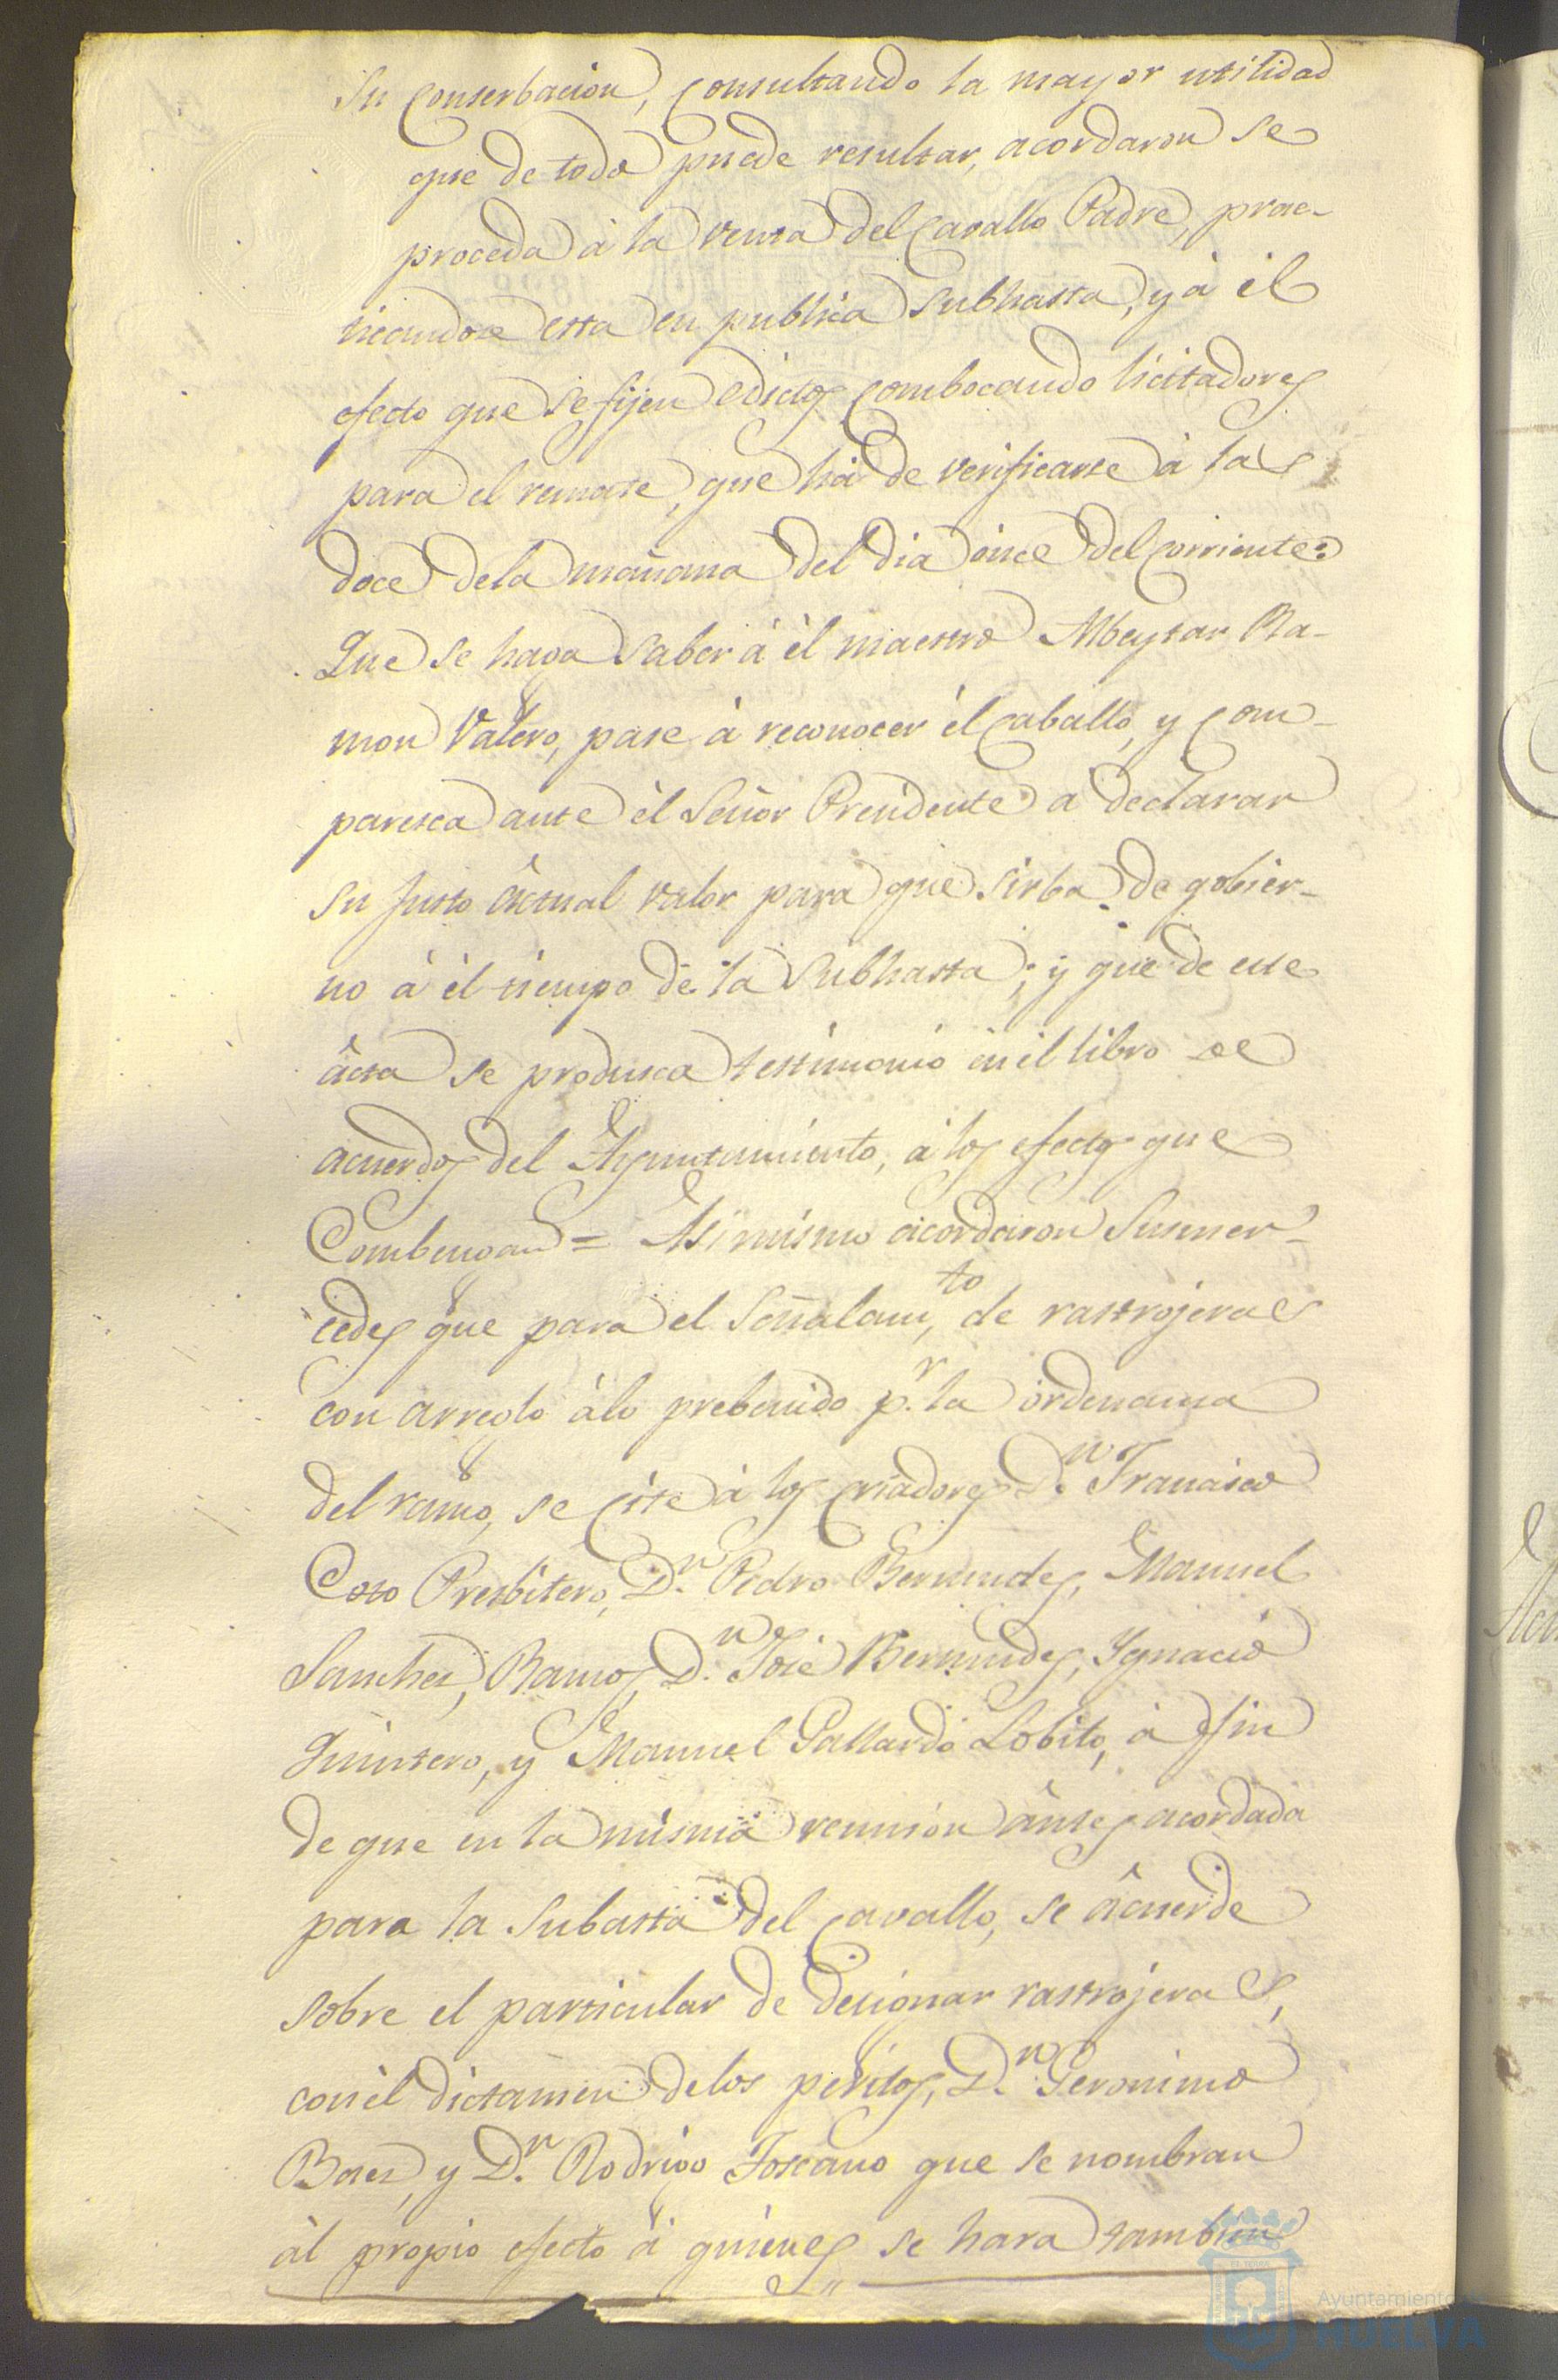 Su Conserbacion, Consultando la mayor utilidad
que de todo puede resultar, acordaron se
proceda à la venta del Cavallo Padre, prac-
ticandose esta en publica Subhasta, y à èl
efecto que se fijen edictos Combocando licitadores
para el remate, que hà de verificarse à las
doce dela mañana del dia ònce del Corriente:
Que se haga saber à èl maestro Albeytar Ra-
mon Valero, pase à reconocer èl Caballo, y Com-
paresca ante èl Señor Presidente à declarar
su justo âctual valor para que sirba de gobier-
no à èl tiempo de la Subhasta; y que de este
âcta se produsca testimonio en èl libro de
acuerdos del Ayuntamiento, à los efectos que
Combengan = Asimismo acordaron Susmer-
cedes que para el Señalam.to de rastrojeras
con arreglo àlo prebenido p.r la òrdenansa
del ramo, se Cite à los Criadores D.n Francisco
Coto Presbitero, D.n Pedro Bermudes, Manuel
Sanches, Ramos, D.n José Bermudes, Ygnacio
Quintero, y Manuel Gallardo Lobito, à fin
de que en la misma reunion àntes acordada
para la Subasta del Cavallo, se âcuerde
sobre el particular de designar rastrojeras,
con èl dictamen delos peritos, D.n Geronimo
Baes, y D.n Rodrigo Toscano que se nombran
àl propio efecto à quienes se hara tambien
Ayuntamiento
HUELVA